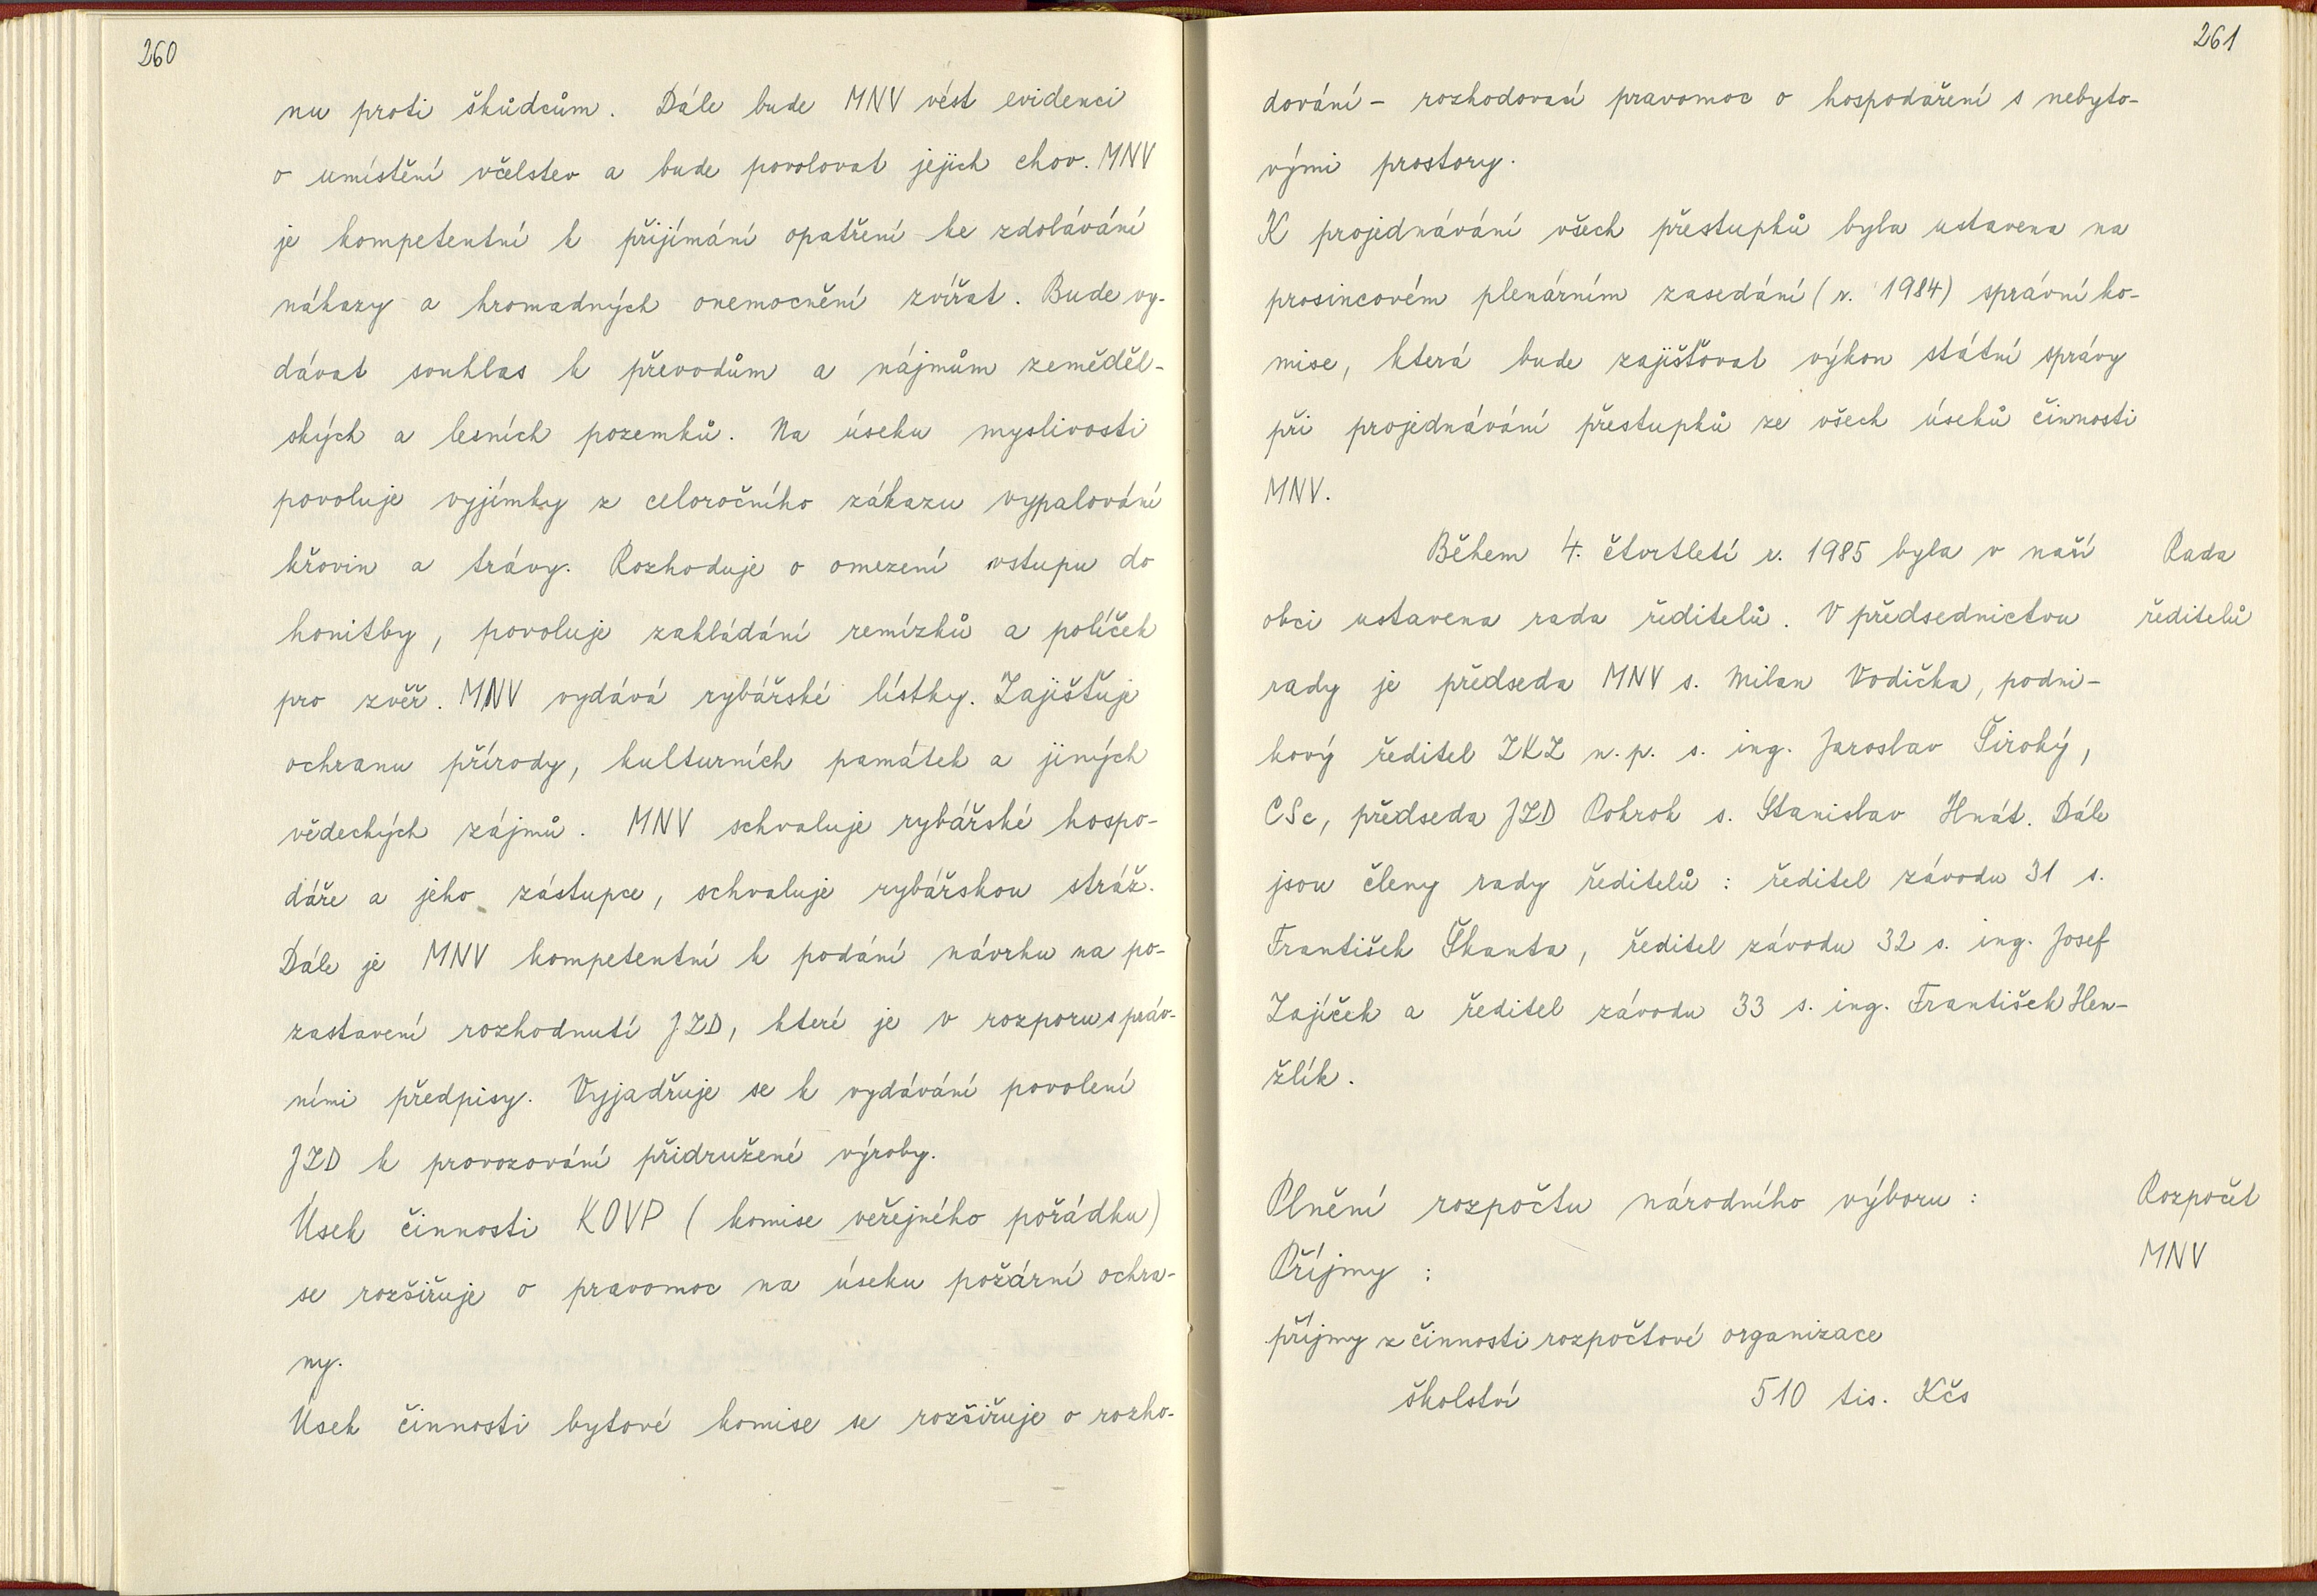 260
nu proti škůdcům. Dále bude MNV vést evidenci
o umístění včelstev a bude povolovat jejich chov. MNV
je kompetentní k přijímání opatření ke zdolávání
nákazy a hromadných onemocnění zvířat. Bude vy-
dávat souhlas k převodům a nájmům zeměděl-
ských a lesních pozemků. Na úseku myslivosti
povoluje vyjímky z celoročního zákazu vypalování
křovin a trávy. Rozhoduje o omezení vstupu do
honitby, povoluje zakládání remízků a políček
pro zvěř. MNV vydává rybářské lístky. Zajišťuje
ochranu přírody, kulturních památek a jiných
vědeckých zájmů. MNV schvaluje rybářské hospo-
dáře a jeho zástupce, schvaluje rybářskou stráž.
Dále je MNV kompetentní k podání návrhu na po-
zastavení rozhodnutí JZD, které je v rozporu s práv-
ními předpisy. Vyjadřuje se k vydávání povolení
JZD k provozování přidružené výroby.
Úsek činnosti KOVP (komise veřejného pořádku)
se rozšiřuje o pravomoc na úseku požární ochra-
ny.
Úsek činnosti bytové komise se rozšiřuje o rozho-
261
dování - rozhodovací pravomoc o hospodaření s nebyto-
vými prostory.
K projednávání všech přestupků byla ustavena na
prosincovém plenárním zasedání (r. 1984) správní ko-
mise, která bude zajišťovat výkon státní správy
při projednávání přestupků ze všech úseků činnosti
MNV.
Během 4. čtvrtletí r. 1985 byla v naší Rada
obci ustavena rada ředitelů. V předsednictvu ředitelů
rady je předseda MNV s. Milan Vodička, podni-
kový ředitel ZKZ n. p. s. ing. Jaroslav Široký,
CSc, předseda JZD Pokrok s. Stanislav Hnát. Dále
jsou členy rady ředitelů: ředitel závodu 31 s.
František Škanta, ředitel závodu 32 s. ing. Josef
Zajíček a ředitel závodu 33 s. ing. František Hen-
žlík.
Plnění rozpočtu národního výboru: Rozpočet
Příjmy: MNV
příjmy z činnosti rozpočtové organizace
školství 510 tis. Kčs